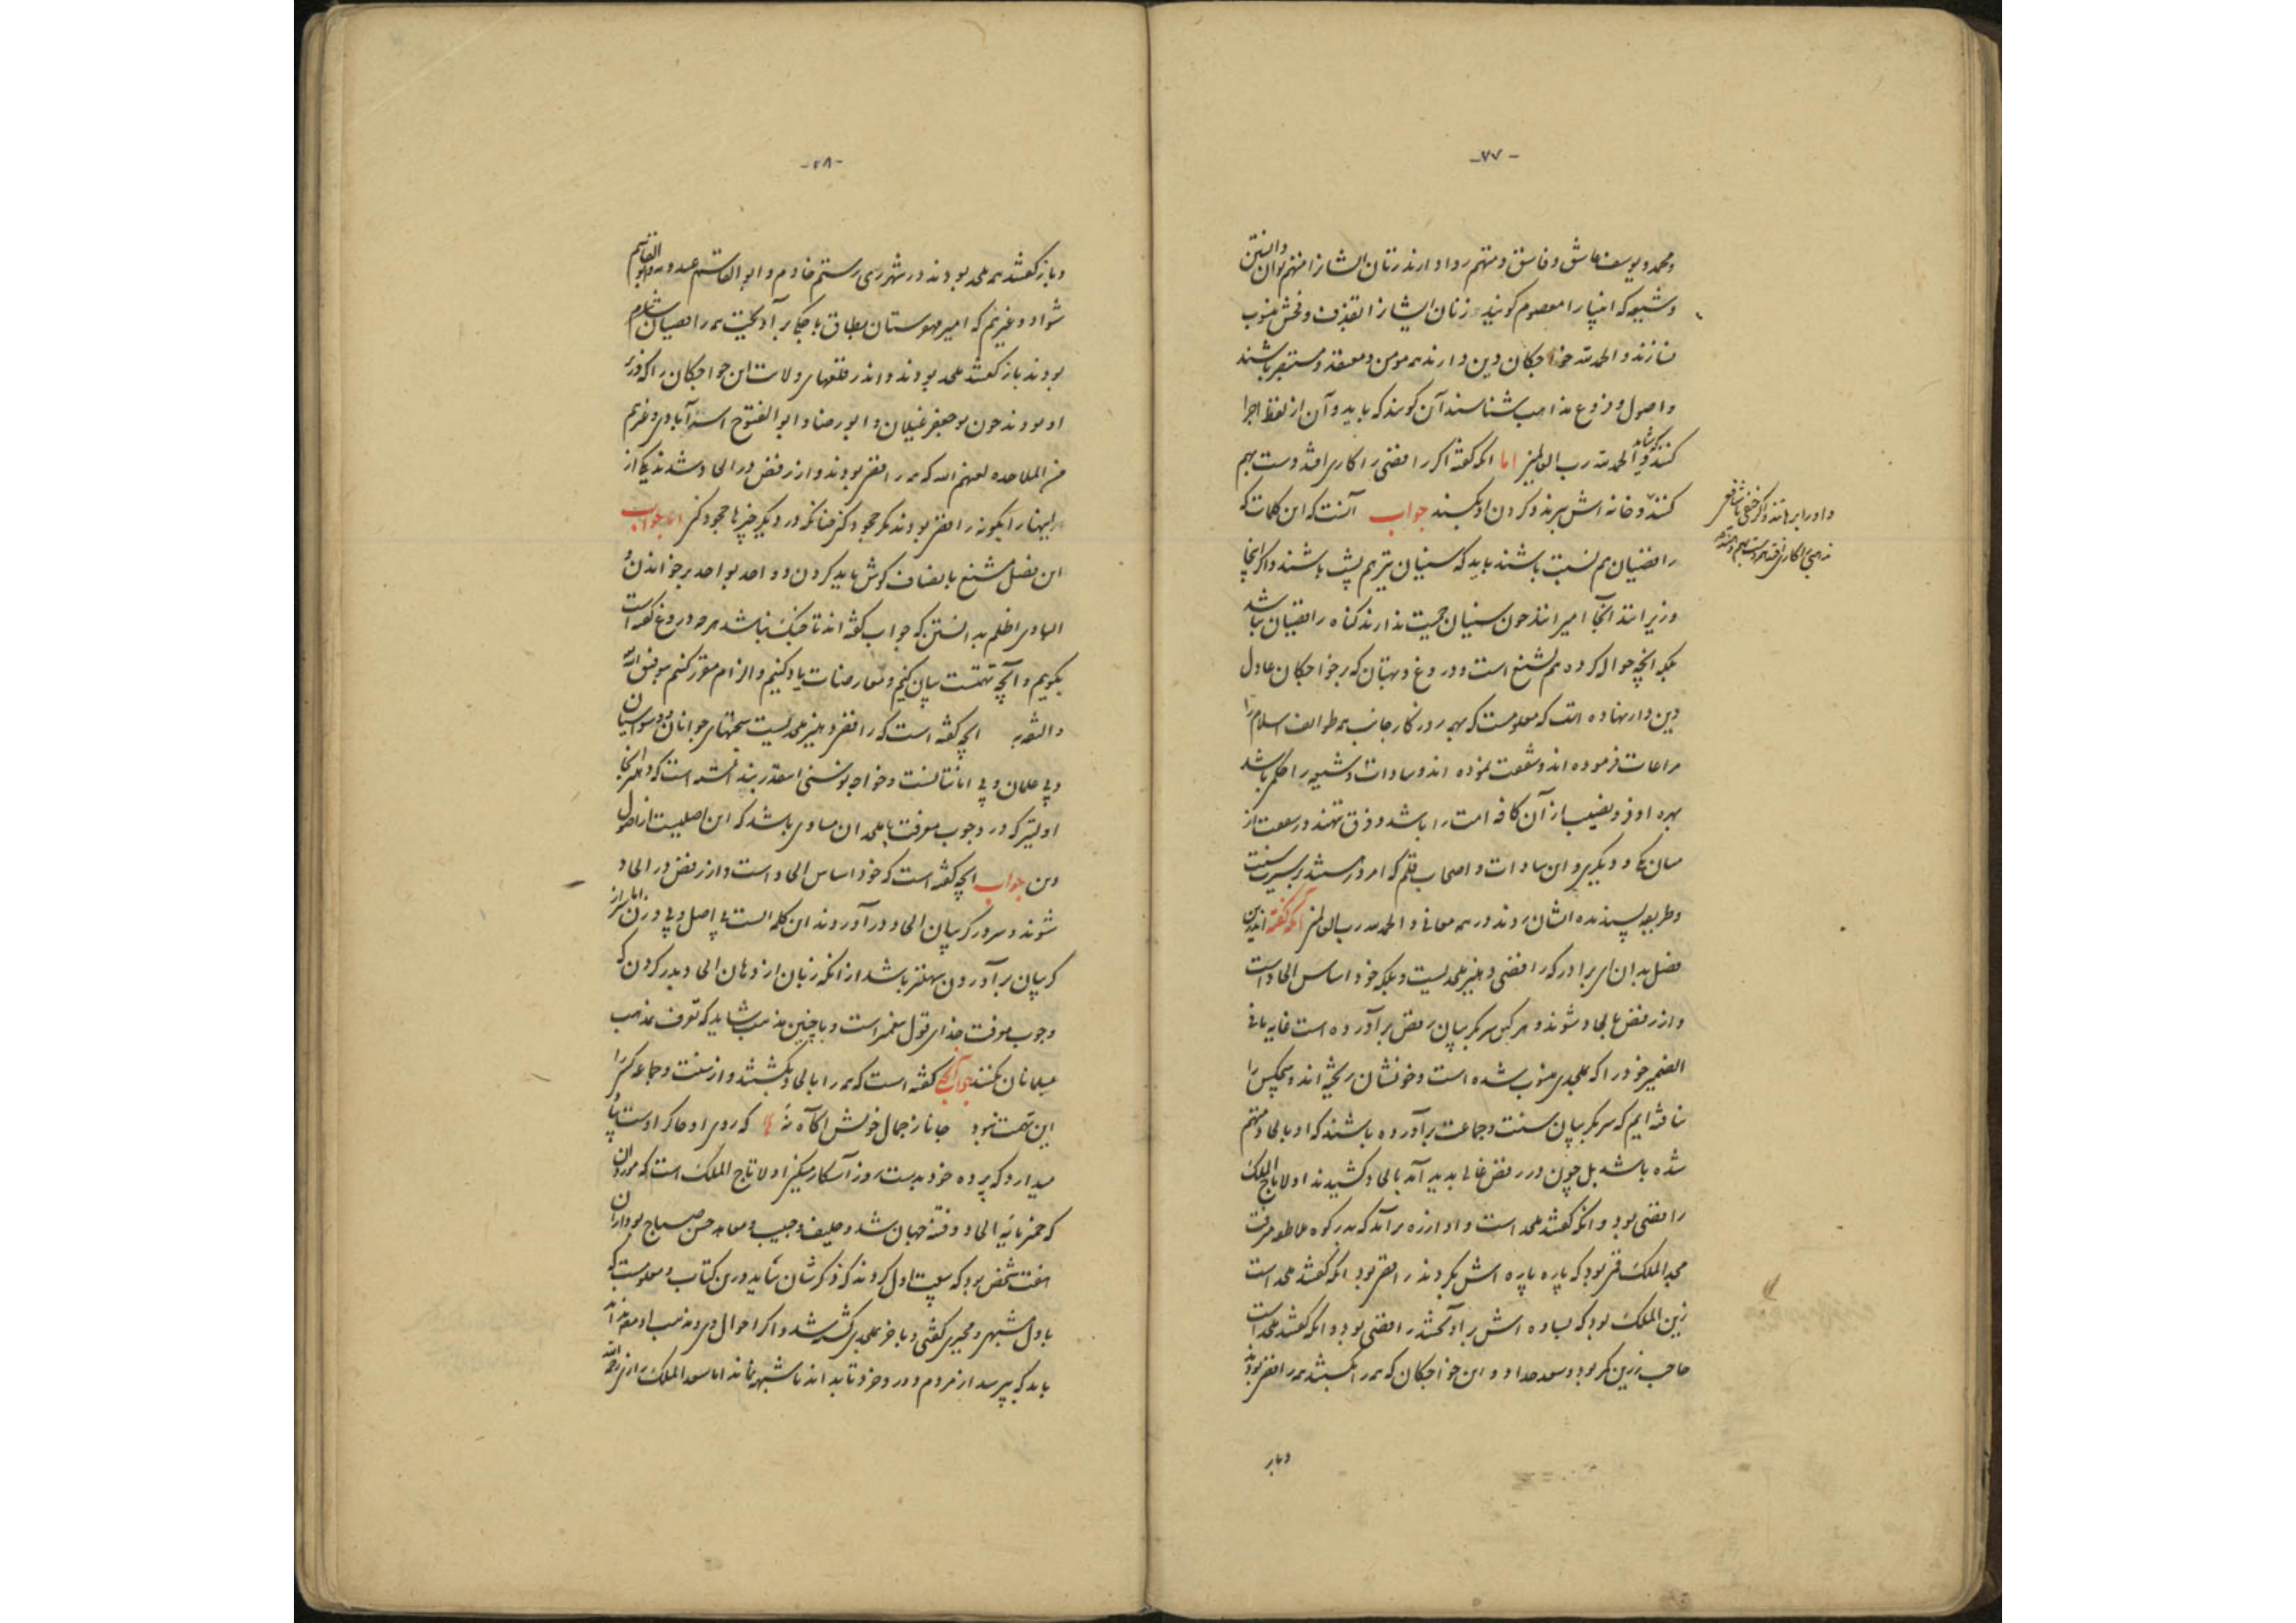 -۷۷-
و محمد و یوسف عاشق و فاسق و متهم روا دارند زنان ایشان را متهم توان دانستن
و شیعه که انبیا را معصوم گویند زنان ایشان را بقذف و فحش منسوب
نسازند و الحمد لله خواجگان دین دارند همه مومن و معتقد و مستبصر باشند
و اصول و فروع مذاهب شناسند آن گویند که باید و آن از لفظ اجرا
کنند که شاید و الحمد لله رب العالمین اما آنکه گفته اگر رافضی را کاری افتد دست بهم
کنند و خانه اش ببرند و گردن او بکشند جواب آنست که این کلمات که
داو را برهانند و اگر حنفی یا شافعی
مذهبی را کاری افتد همه دست بهم
رافضیان هم پشت باشند باید که سنیان نیز هم پشت باشند و اگر اینجا
وزیرانند آنجا امیرانند چون سنیان حمیت ندارند گناه رافضیان باشد
بلکه آنچه حوالت کرده هم تشنیع است و دروغ و بهتان که بر خواجگان عادل
دین دار نهاده است که معلومست که بهمه روزگار جانب همه طوائف اسلام را
مراعات فرموده اند و شفقت نموده اند و سادات و شیعه را حکم باشد
بهره اوفر و نصیب از آن کافه امت را باشد و فرق ننهند در شفقت از
میان یکی و دیگری و این سادات و اصحاب قلم که امروز هستند بر سیرت و سنت
و طریقه پسندیده ایشان روند در همه معانی و الحمد لله رب العالمین آنکه گفته اندرین
فصل بدان ای برادر که رافضی دهلیز ملحدیست و بلکه خود اساس الحاد است
و از رفض بالحاد شوند و هر کس سر بگریبان رفض برآورده است غایة ما فی
الضمیر خود را که بملحدی منسوب شده است و خونشان ریخته اند و هیچکس را
نیافته ایم که سر بگریبان سنت و جماعت برآورده باشند که او بالحاد متهم
شده باشد بل چون در رفض غالی پدید آمد بالحاد کشیدند اولا تاج الملک
رافضی بود و آنکه گفتند ملحد است و آوازه برآمد که بدر کوه طاطو میرفت
مجد الملک قمی بود که پاره پاره اش بکردند رافضی بود آنکه گفتند ملحد است
زین الملک بود که بساوه اش برآویختند رافضی بود و آنکه گفتند ملحد است
حاجب زرین کمر بود و سعد حداد و این خواجگان که همه را بکشتند همه رافضی بودند
و باز
-۷۸-
و باز گفتند همه ملحد بودند در شهر ری رستم خادم و ابو القاسم عبدویه و ابو القاسم
شواد و غیرهم که امیر قهوستان بطاق باجگر برآویخت همه رافضیان
بودند باز گفتند ملحد بودند و اندر قلعهای ولات این خواجگان را که وزیر
او بودند چون بوجعفر غیلان و ابو رضا و ابو الفتوح استرآبادی و غیرهم
من الملاحده لعنهم الله که همه رافضی بودند و از رفض در الحاد شدند یکی از
اینها را بگو نه رافضی بودند مگر جحود کنی چنانکه در دیگر چیزها جحود کنی اما جواب
این فصل مشنع بانصاف گوش باید کردن و واحد بواحد برخواندن و
البادی اظلم بدانستن که جواب گفته اند تا جنگ نباشد هر چه دروغ گفته است
بگویم و آنچه تهمتست بیان کنیم و معارضات یاد کنیم و الزام مقرر کنیم بتوفیق الله
والثقه به آنچه گفته است که رافضی دهلیز ملحدیست سخنهای جوانان و سوقیان
و بی علمان و بی امانتانست و خواجه نوسنی اینقدر ندانسته است که دهلیز آنجا
اولیتر که در وجوب معرفت با ملحدان مساوی باشد که این اصلیست از اصول
دین جواب آنچه گفته است که خود اساس الحاد است و از رفض در الحاد
شوند و سر در گریبان الحاد درآوردند این کلمه ایست بی اصل و بی وزن اما سر از
گریبان برآوردن سهلتر باشد از آنکه زبان از دهان الحاد بدر کردن که
وجوب معرفت خدای قول پیغمبر است و با چنین مذهب شاید که تعرف مذهب
مسلمانان نکنند جواب آنچه گفته است که همه را بالحاد بکشتند و از سنت و جماعه کس را
این تهمت نبود جانا ز جمال خویش آگاه نه که روی او خاکراه اوست پا
میدارد که پرده خود بدست روز آشکار میکنی اولا تاج الملک است که
که خمیر مایه الحاد و فتنه جهان شد و حلیف و حبیب و معاهد حسن صباح بود و از آن
هفت شخص بود که بیعت اول کردند که ذکرشان بیاید درین کتاب و معلومست که
باول مشبهی و مجبری گفتی و باخر بملحدی کشته شد و اگر احوال وی و مذهب او
باید که بپرسد از مردم دورود خود تا بداند تا شبهه نماند اما سعد الملک رازی رحمه الله